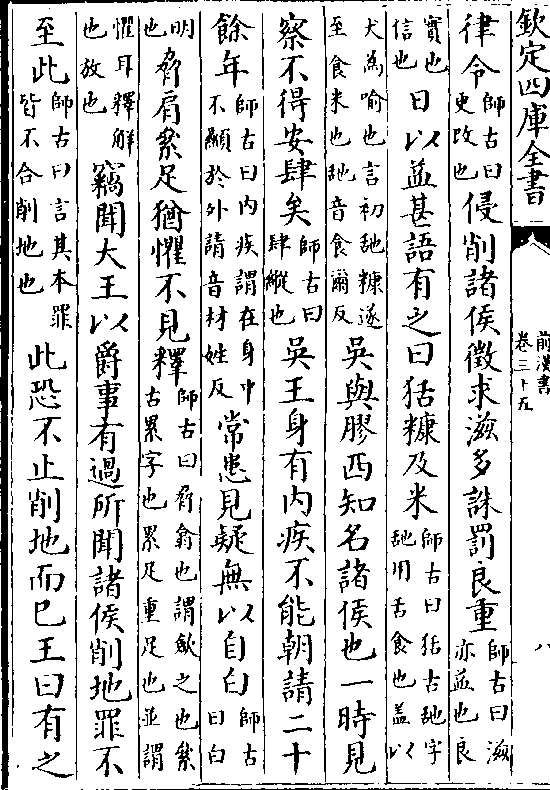 欽定四庫全書
前漢書
卷三十五
八
律令師古曰更改也侵削諸侯徵求滋多誅罰良重師古曰滋亦益也良
實也信也曰以益甚語有之曰狧糠及米師古曰狧古䑛字䑛用舌食也蓋以
犬為喻也言初䑛糠遂至食米也䑛音食爾反吳與膠西知名諸侯也一時見
察不得安肆矣師古曰肆縱也吳王身有內疾不能朝請二十
餘年師古曰內疾謂在身中不顯於外請音材姓反常患見疑無以自白師古曰白
明也脅肩絫足猶懼不見釋師古曰脅翕也謂歛之也絫古累字也累足重足也並謂
懼耳釋解也放也竊聞大王以爵事有過所聞諸侯削地罪不
至此師古曰言其本罪皆不合削地也此恐不止削地而已王曰有之